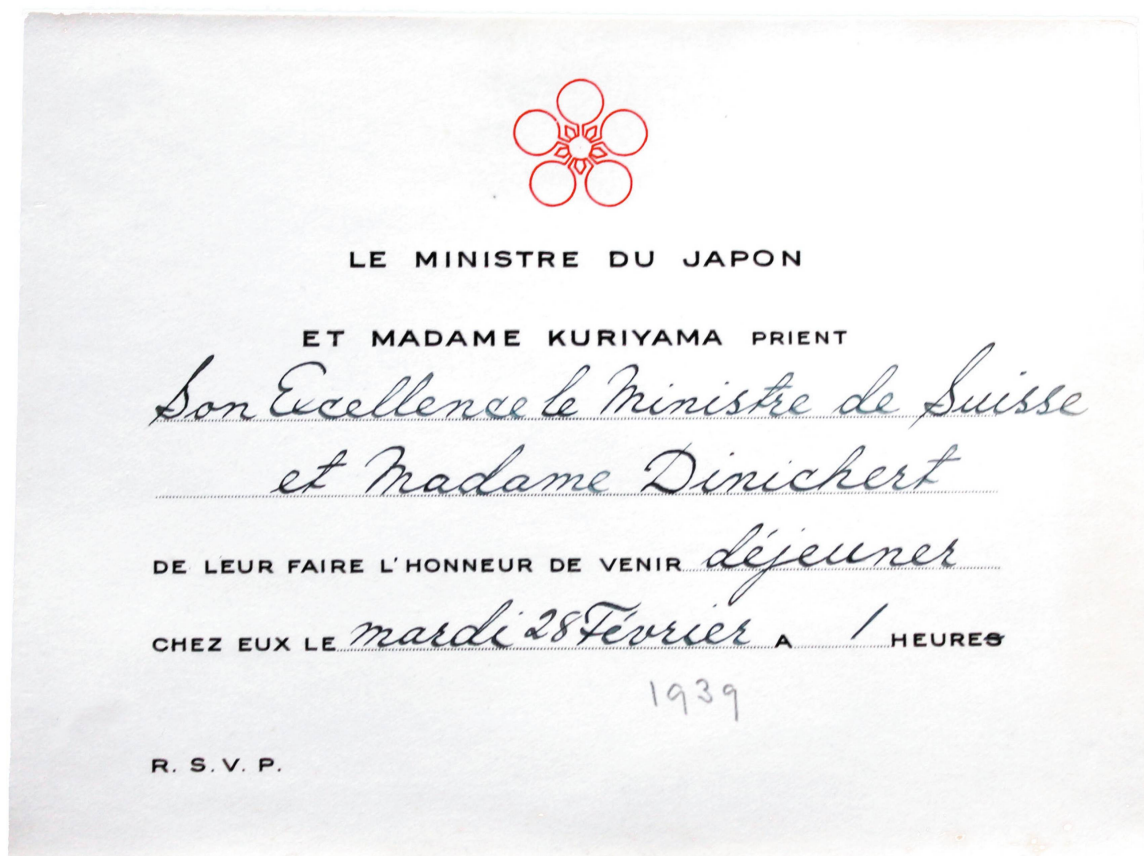 LE MINISTRE DU JAPON
ET MADAME KURIYAMA PRIENT
Son Excellence le Ministre de Suisse
et Madame Dinichert
DE LEUR FAIRE L'HONNEUR DE VENIR déjeuner
CHEZ EUX LE mardi 28 Février A 1 HEURES
1939
R. S. V. P.